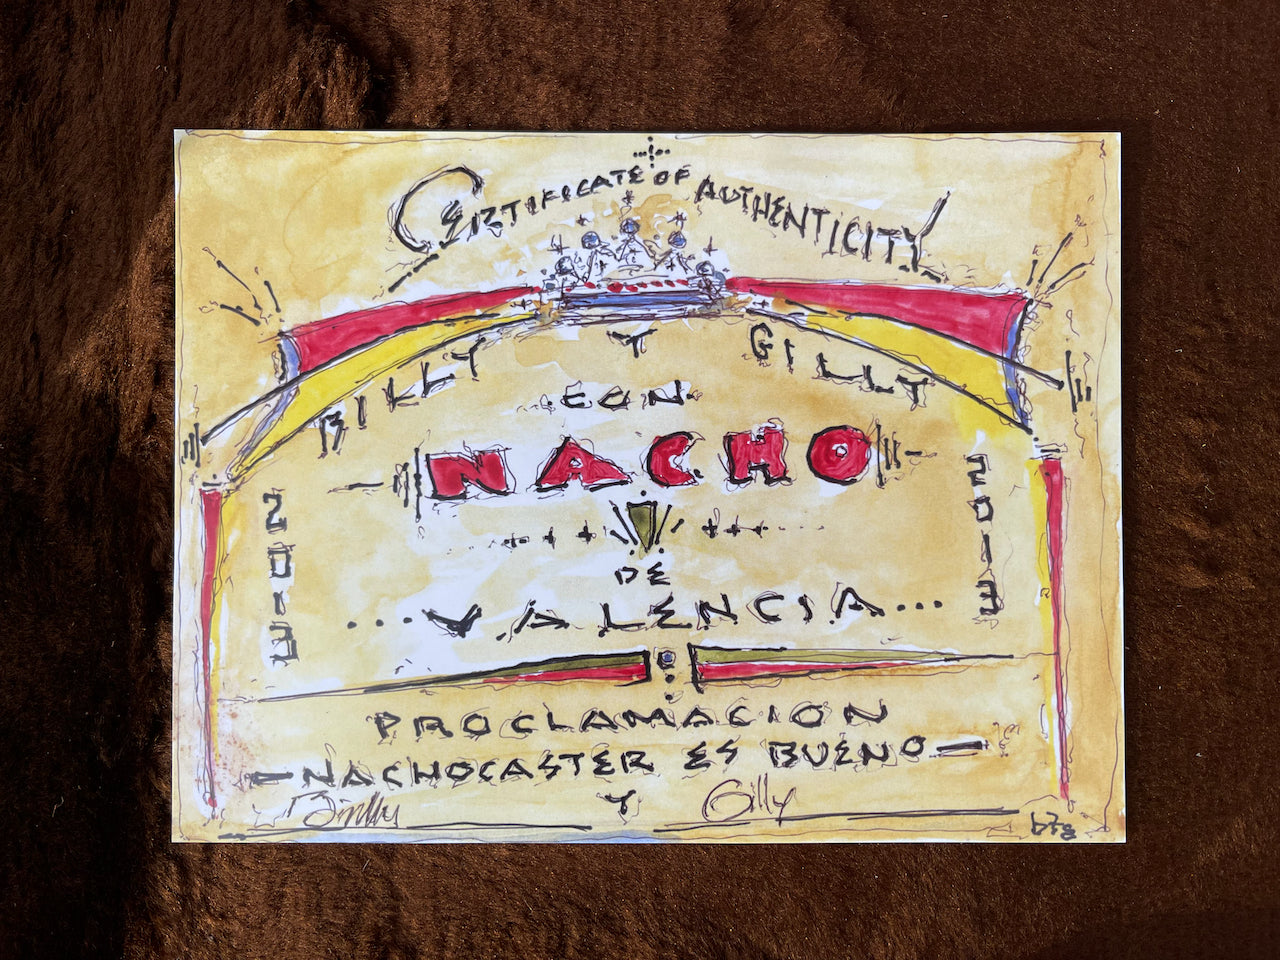 CERTIFICATE OF AUTHENTICITY
BILLY Y GILLY
CON
NACHO
2013
2013
DE
...VALENCIA...
PROCLAMACION
NACHOCASTER ES BUENO
Billy Y Gilly